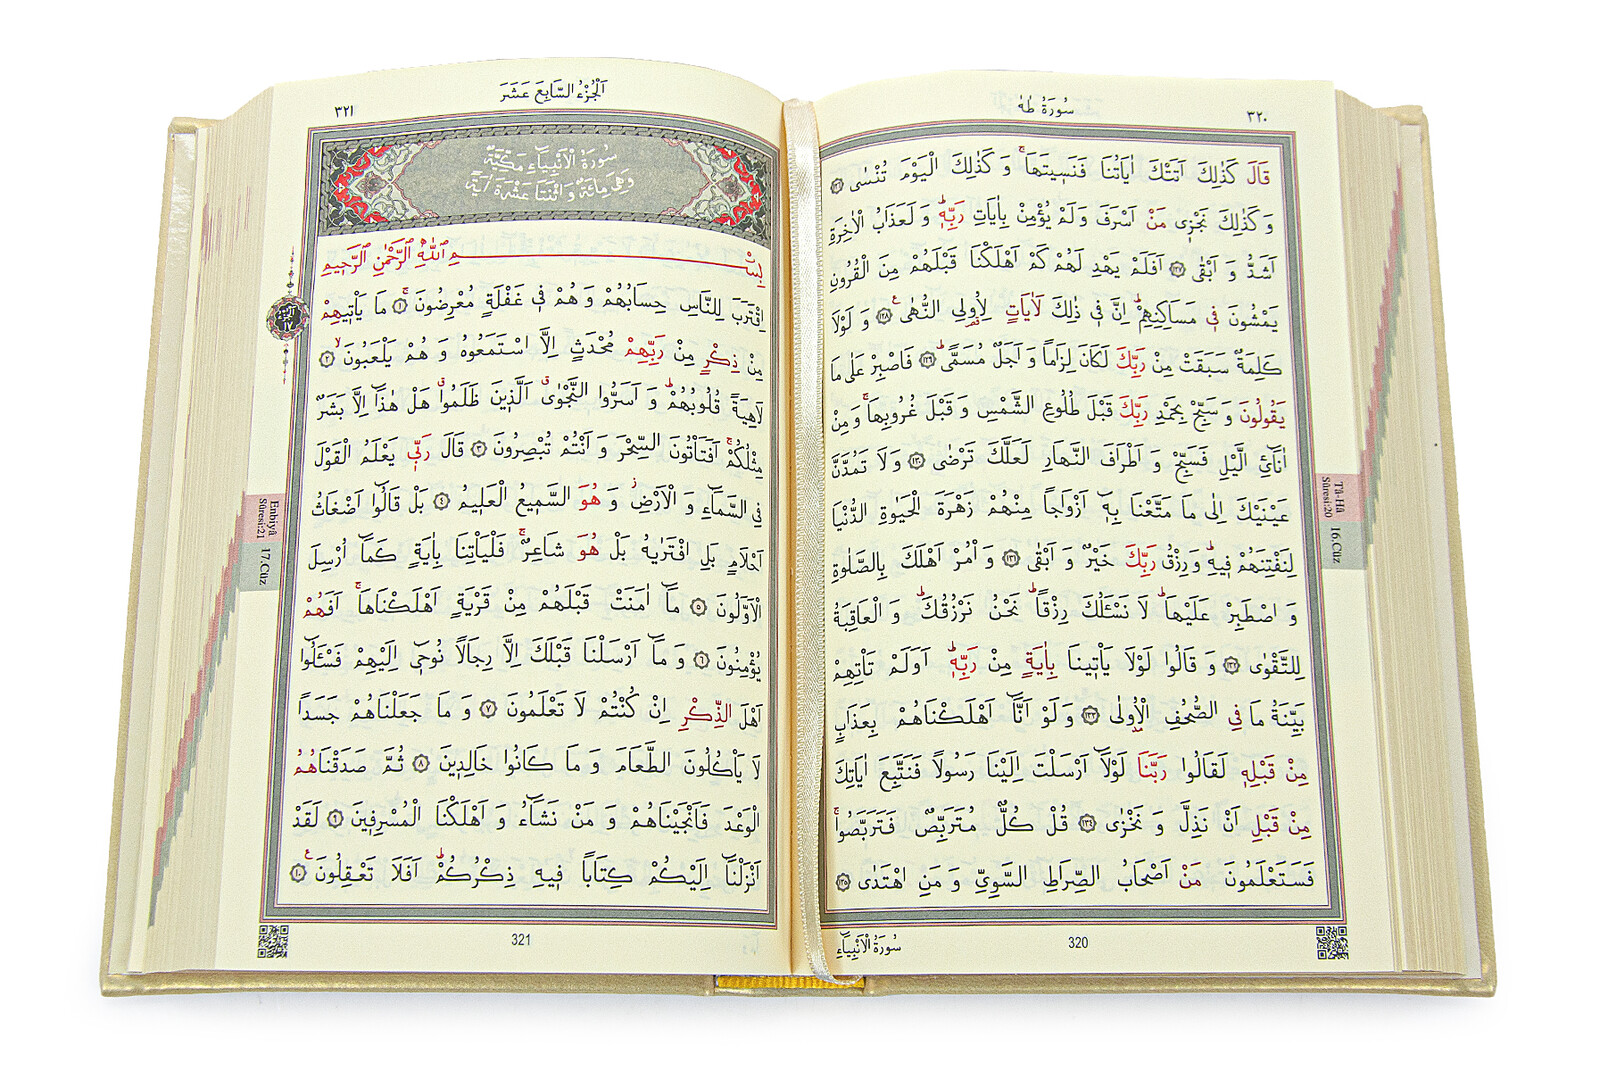 سُورَةُ طٰهٰ
٣٢٠
قَالَ كَذٰلِكَ اَتَتْكَ اٰيَاتُنَا فَنَسٖيتَهَاۚ وَكَذٰلِكَ الْيَوْمَ تُنْسٰى ﴿١٢٦﴾
وَكَذٰلِكَ نَجْزٖى مَنْ اَسْرَفَ وَلَمْ يُؤْمِنْ بِاٰيَاتِ رَبِّهٖؕ وَلَعَذَابُ الْاٰخِرَةِ
اَشَدُّ وَاَبْقٰى ﴿١٢٧﴾ اَفَلَمْ يَهْدِ لَهُمْ كَمْ اَهْلَكْنَا قَبْلَهُمْ مِنَ الْقُرُونِ
يَمْشُونَ فٖى مَسَاكِنِهِمْؕ اِنَّ فٖى ذٰلِكَ لَاٰيَاتٍ لِاُو۬لِى النُّهٰىࣖ ﴿١٢٨﴾ وَلَوْلَا
كَلِمَةٌ سَبَقَتْ مِنْ رَبِّكَ لَكَانَ لِزَاماً وَاَجَلٌ مُسَمًّىؕ ﴿١٢٩﴾ فَاصْبِرْ عَلٰى مَا
يَقُولُونَ وَسَبِّحْ بِحَمْدِ رَبِّكَ قَبْلَ طُلُوعِ الشَّمْسِ وَقَبْلَ غُرُوبِهَاۚ وَمِنْ
اٰنَآئِ الَّيْلِ فَسَبِّحْ وَاَطْرَافَ النَّهَارِ لَعَلَّكَ تَرْضٰى ﴿١٣٠﴾ وَلَا تَمُدَّنَّ
عَيْنَيْكَ اِلٰى مَا مَتَّعْنَا بِهٖٓ اَزْوَاجاً مِنْهُمْ زَهْرَةَ الْحَيٰوةِ الدُّنْيَا
لِنَفْتِنَهُمْ فٖيهِؕ وَرِزْقُ رَبِّكَ خَيْرٌ وَاَبْقٰى ﴿١٣١﴾ وَأْمُرْ اَهْلَكَ بِالصَّلٰوةِ
وَاصْطَبِرْ عَلَيْهَاؕ لَا نَسْـَٔلُكَ رِزْقاًؕ نَحْنُ نَرْزُقُكَؕ وَالْعَاقِبَةُ
لِلتَّقْوٰى ﴿١٣٢﴾ وَقَالُوا لَوْلَا يَأْتٖينَا بِاٰيَةٍ مِنْ رَبِّهٖؕ اَوَلَمْ تَأْتِهِمْ
بَيِّنَةُ مَا فِى الصُّحُفِ الْاُو۫لٰى ﴿١٣٣﴾ وَلَوْ اَنَّٓا اَهْلَكْنَاهُمْ بِعَذَابٍ
مِنْ قَبْلِهٖ لَقَالُوا رَبَّنَا لَوْلَٓا اَرْسَلْتَ اِلَيْنَا رَسُولاً فَنَتَّبِعَ اٰيَاتِكَ
مِنْ قَبْلِ اَنْ نَذِلَّ وَنَخْزٰى ﴿١٣٤﴾ قُلْ كُلٌّ مُتَرَبِّصٌ فَتَرَبَّصُواۚ
فَسَتَعْلَمُونَ مَنْ اَصْحَابُ الصِّرَاطِ السَّوِيِّ وَمَنِ اهْتَدٰى ﴿١٣٥﴾
Tâ-Hâ
Sûresi:20
16.Cüz
320
سُورَةُ الْاَنْبِيَٓاءِ
اَلْجُزْءُ السَّابِعَ عَشَرَ
٣٢١
سُورَةُ الْاَنْبِيَٓاءِ مَكِّيَّةٌ
وَهِىَ مِائَةٌ وَاثْنَتَا عَشْرَةَ اٰيَةً
بِسْمِ اللّٰهِ الرَّحْمٰنِ الرَّحٖيمِ
اِقْتَرَبَ لِلنَّاسِ حِسَابُهُمْ وَهُمْ فٖى غَفْلَةٍ مُعْرِضُونَۚ ﴿١﴾ مَا يَأْتٖيهِمْ
مِنْ ذِكْرٍ مِنْ رَبِّهِمْ مُحْدَثٍ اِلَّا اسْتَمَعُوهُ وَهُمْ يَلْعَبُونَۙ ﴿٢﴾
لَاهِيَةً قُلُوبُهُمْؕ وَاَسَرُّوا النَّجْوٰىۗ اَلَّذٖينَ ظَلَمُواۗ هَلْ هٰذَٓا اِلَّا بَشَرٌ
مِثْلُكُمْۚ اَفَتَأْتُونَ السِّحْرَ وَاَنْتُمْ تُبْصِرُونَ ﴿٣﴾ قَالَ رَبّٖى يَعْلَمُ الْقَوْلَ
فِى السَّمَٓاءِ وَالْاَرْضِؗ وَهُوَ السَّمٖيعُ الْعَلٖيمُ ﴿٤﴾ بَلْ قَالُٓوا اَضْغَاثُ
اَحْلَامٍ بَلِ افْتَرٰيهُ بَلْ هُوَ شَاعِرٌۚ فَلْيَأْتِنَا بِاٰيَةٍ كَمَٓا اُرْسِلَ
الْاَوَّلُونَ ﴿٥﴾ مَٓا اٰمَنَتْ قَبْلَهُمْ مِنْ قَرْيَةٍ اَهْلَكْنَاهَاۚ اَفَهُمْ
يُؤْمِنُونَ ﴿٦﴾ وَمَٓا اَرْسَلْنَا قَبْلَكَ اِلَّا رِجَالاً نُوحٖٓى اِلَيْهِمْ فَسْـَٔلُٓوا
اَهْلَ الذِّكْرِ اِنْ كُنْتُمْ لَا تَعْلَمُونَ ﴿٧﴾ وَمَا جَعَلْنَاهُمْ جَسَداً
لَا يَأْكُلُونَ الطَّعَامَ وَمَا كَانُوا خَالِدٖينَ ﴿٨﴾ ثُمَّ صَدَقْنَاهُمُ
الْوَعْدَ فَاَنْجَيْنَاهُمْ وَمَنْ نَشَٓاءُ وَاَهْلَكْنَا الْمُسْرِفٖينَ ﴿٩﴾ لَقَدْ
اَنْزَلْنَٓا اِلَيْكُمْ كِتَاباً فٖيهِ ذِكْرُكُمْؕ اَفَلَا تَعْقِلُونَࣖ ﴿١٠﴾
Enbiyâ
Sûresi:21
17.Cüz
321